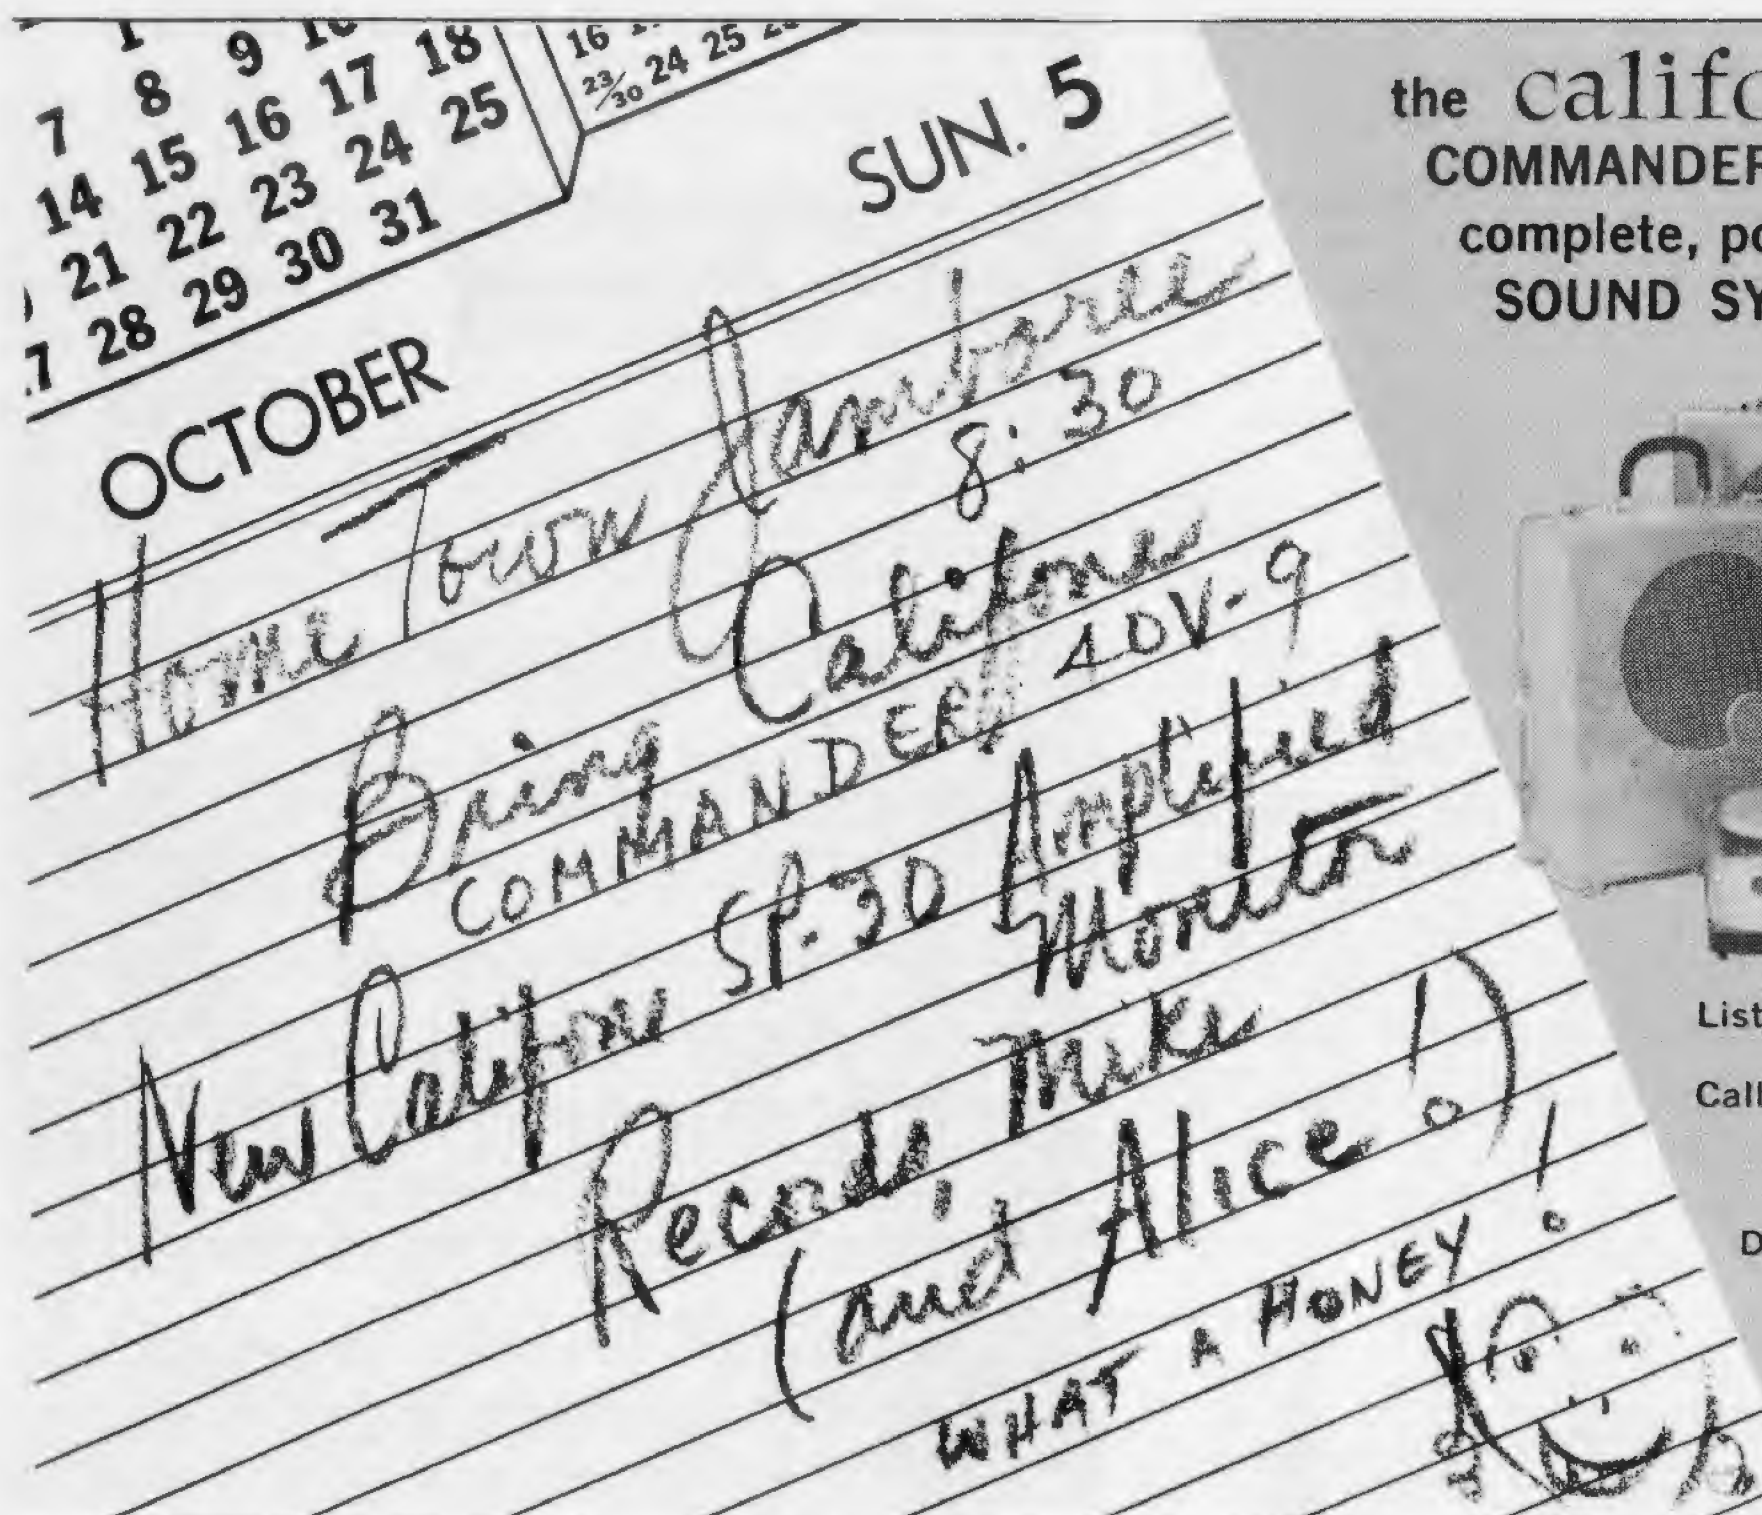 1
8 9
7 8 9 10
14 15 16 17 18
21 22 23 24 25
28 29 30 31
16
23/30 24 25
SUN. 5
OCTOBER
Home Town Jamboree
8:30
Bring Califone
COMMANDER 40V-9
New Califone SP-30 Amplified
Monitor
Records, mike
(and Alice!)
WHAT A HONEY!
the califo
COMMANDER
complete, po
SOUND SY
List
Call
D